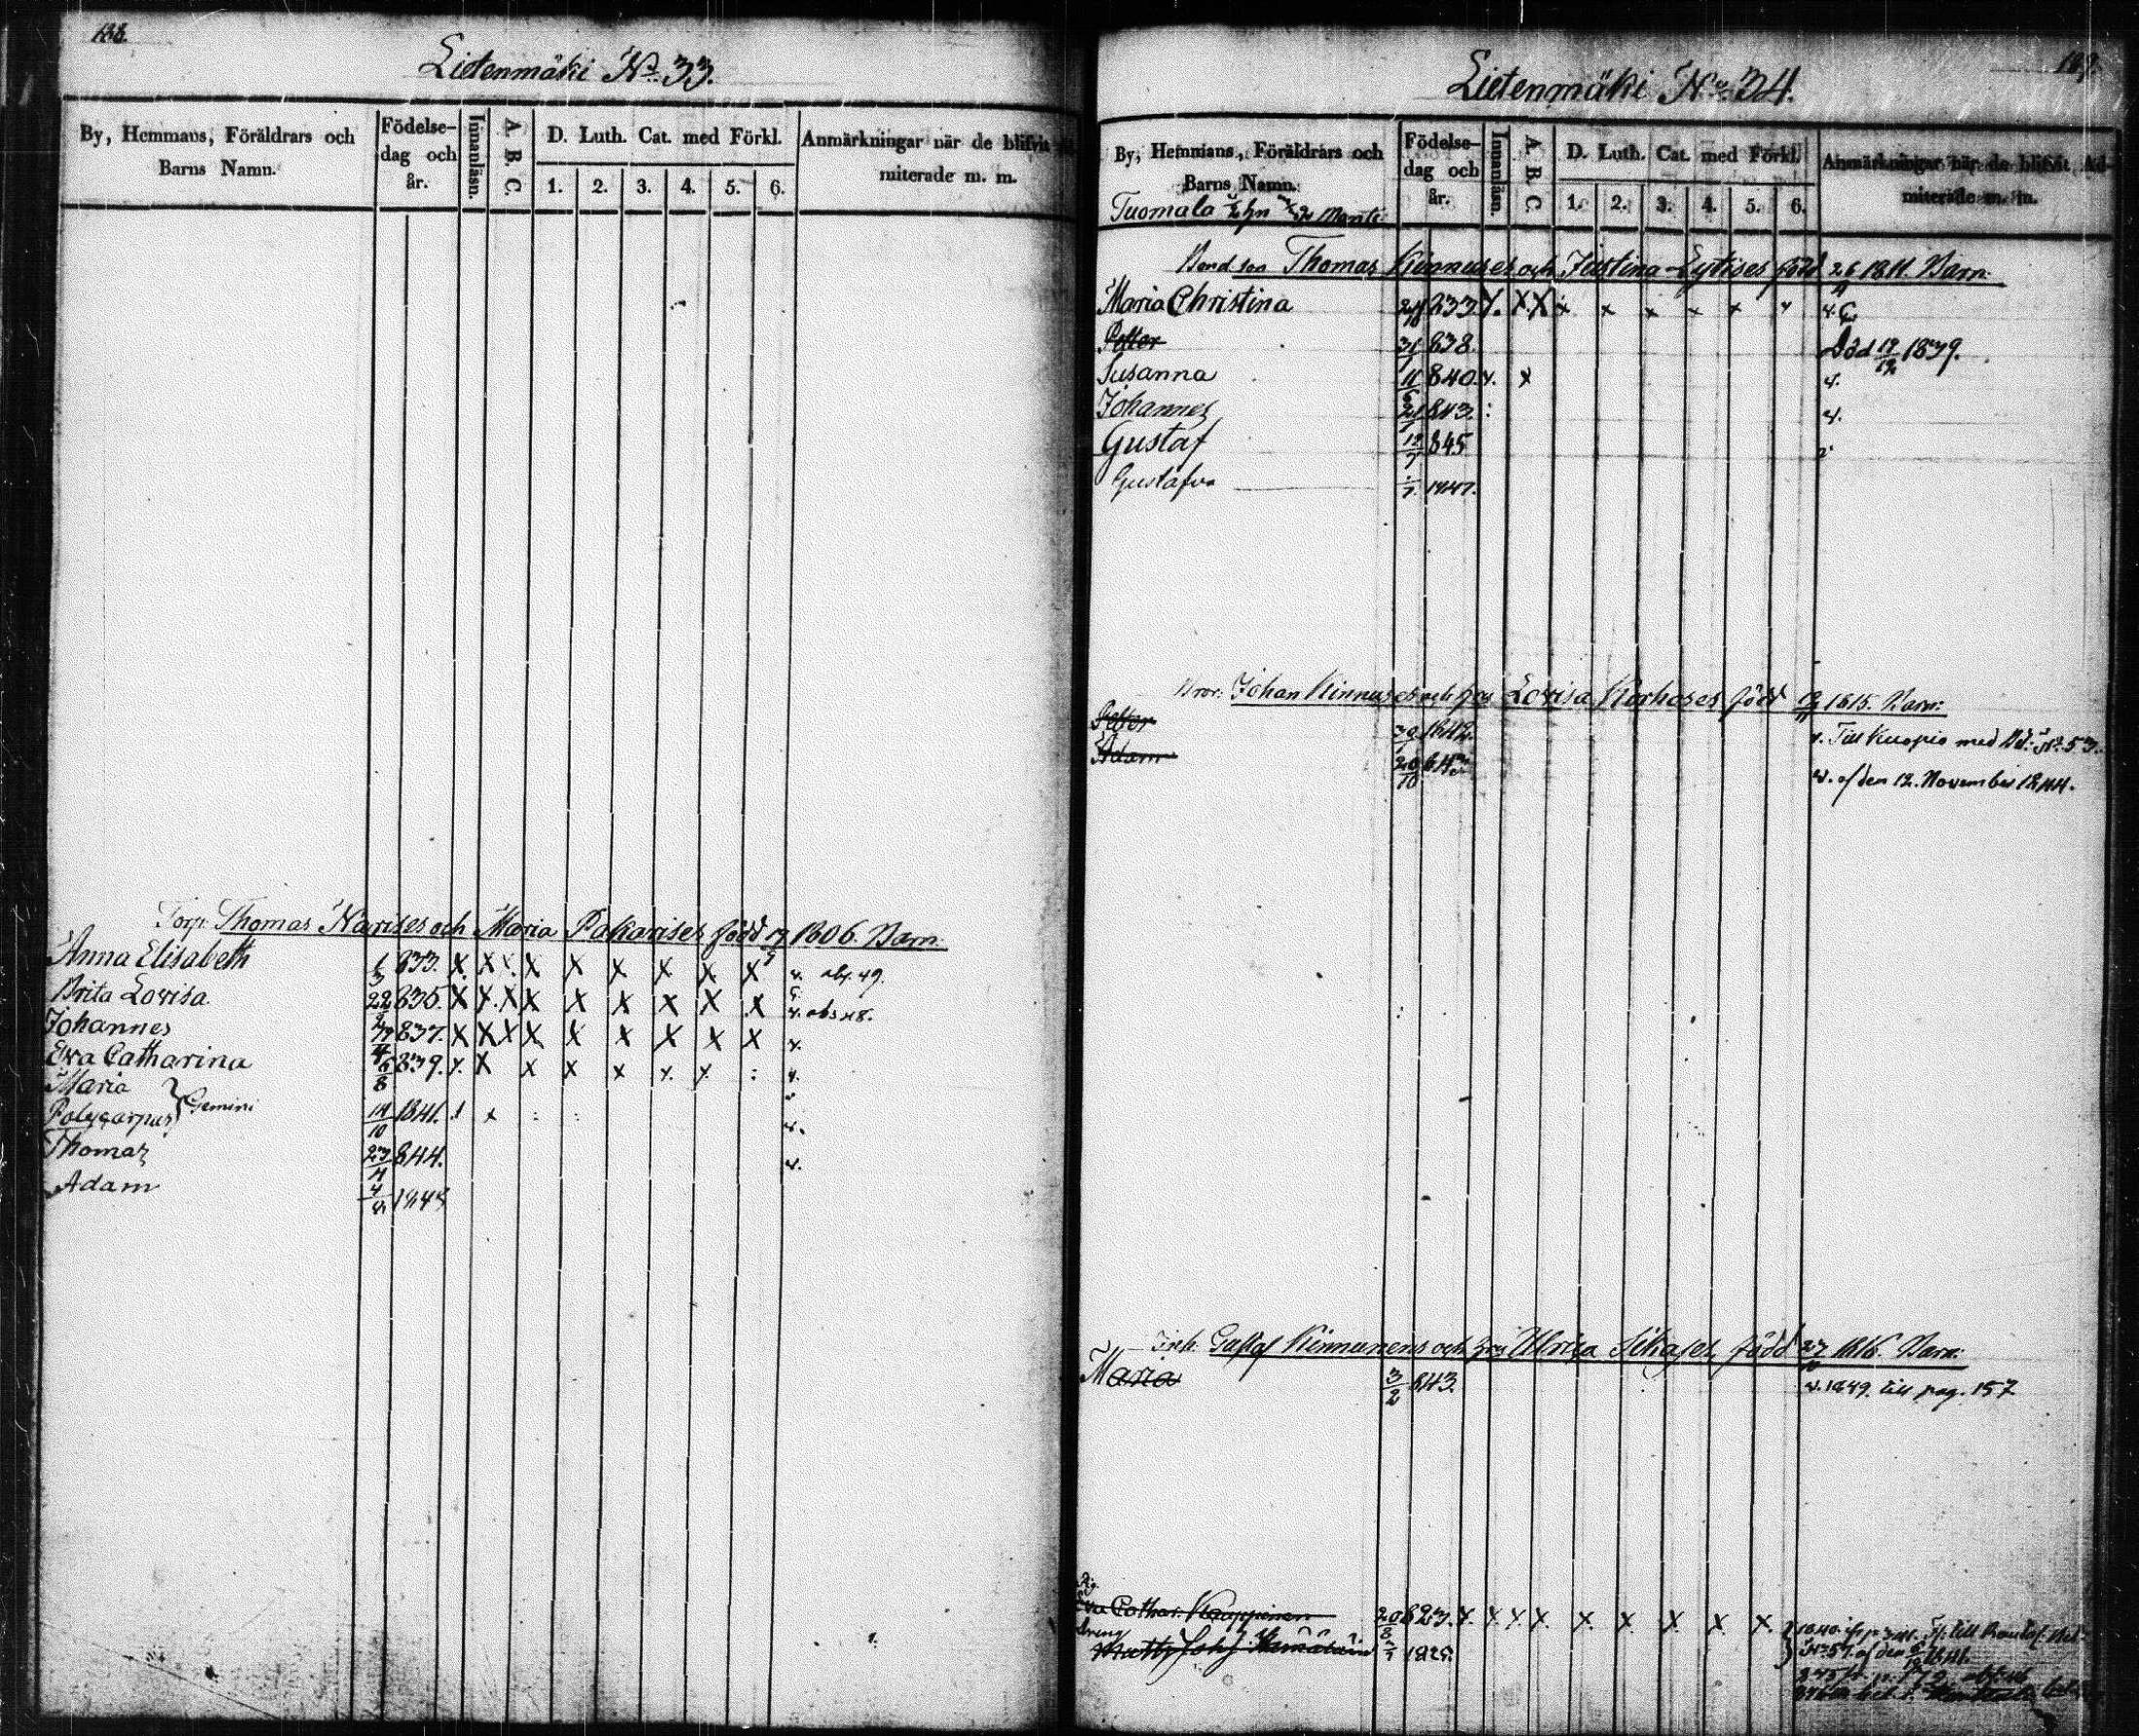 188.
Lietenmäki No. 33.
By, Hemmans, Föräldrars och Barns Namn.
Födelse-dag och år.
Innanläsn.
A. B. C.
D. Luth. Cat. med Förkl.
1. 2. 3. 4. 5. 6.
Anmärkningar när de blifvit
miterade m. m.
Torp. Thomas Narises och Maria Pakarises född 17 1806. Barn.
Anna Elisabeth 1/3 833. X. X X. X X X X X X v. abs. 49.
Brita Lovisa 22/2 835. X X. X X X X X X X v. abs 48.
Johannes 837. X X X X X X X X X v.
Eva Catharina 6/8 839. x. X x x x x. x. : v.
Maria } Gemini
Polycarpus 14/10 1841. x : : v.
Thomas 23/11 844. v.
Adam 4
Lietenmäki No. 34.
By, Hemmans, Föräldrars och Barns Namn.
Födelse-dag och år.
Innanläsn.
A. B. C.
D. Luth. Cat. med Förkl.
1. 2. 3. 4. 5. 6.
Anmärkningar när de blifvit Ad-
miterade m. m.
Tuomala
Bond. son Thomas Kinnuses och Justina Lytises född 26 1811. Barn:
Maria Christina 833 X. X X x x x x x x v.
Petter 31/1 838. Död 19/12 1839.
Susanna 11/6 840. x. x v.
Johannes 21 843. : v.
Gustaf 12/7 845
Gustafva 1847.
Bror: Johan Kinnuses och hos Lovisa Korhoses född 1815. Barn:
Petter 30 1842. v. Till Kuopio med Bd: No. 53.
Adam 20/10 843 v. af den 12. November 1844.
Inh. Gustaf Kinnunens och hos Ulrica Sikases född 27 1816. Barn:
Maria 3/2 843. v. 1849. till pag. 157
Pig.
Eva Cathar. Kauppinen 20/8 823. X. X. X. X. X. X. X. X X.
Dreng
Matts Johs 1825.